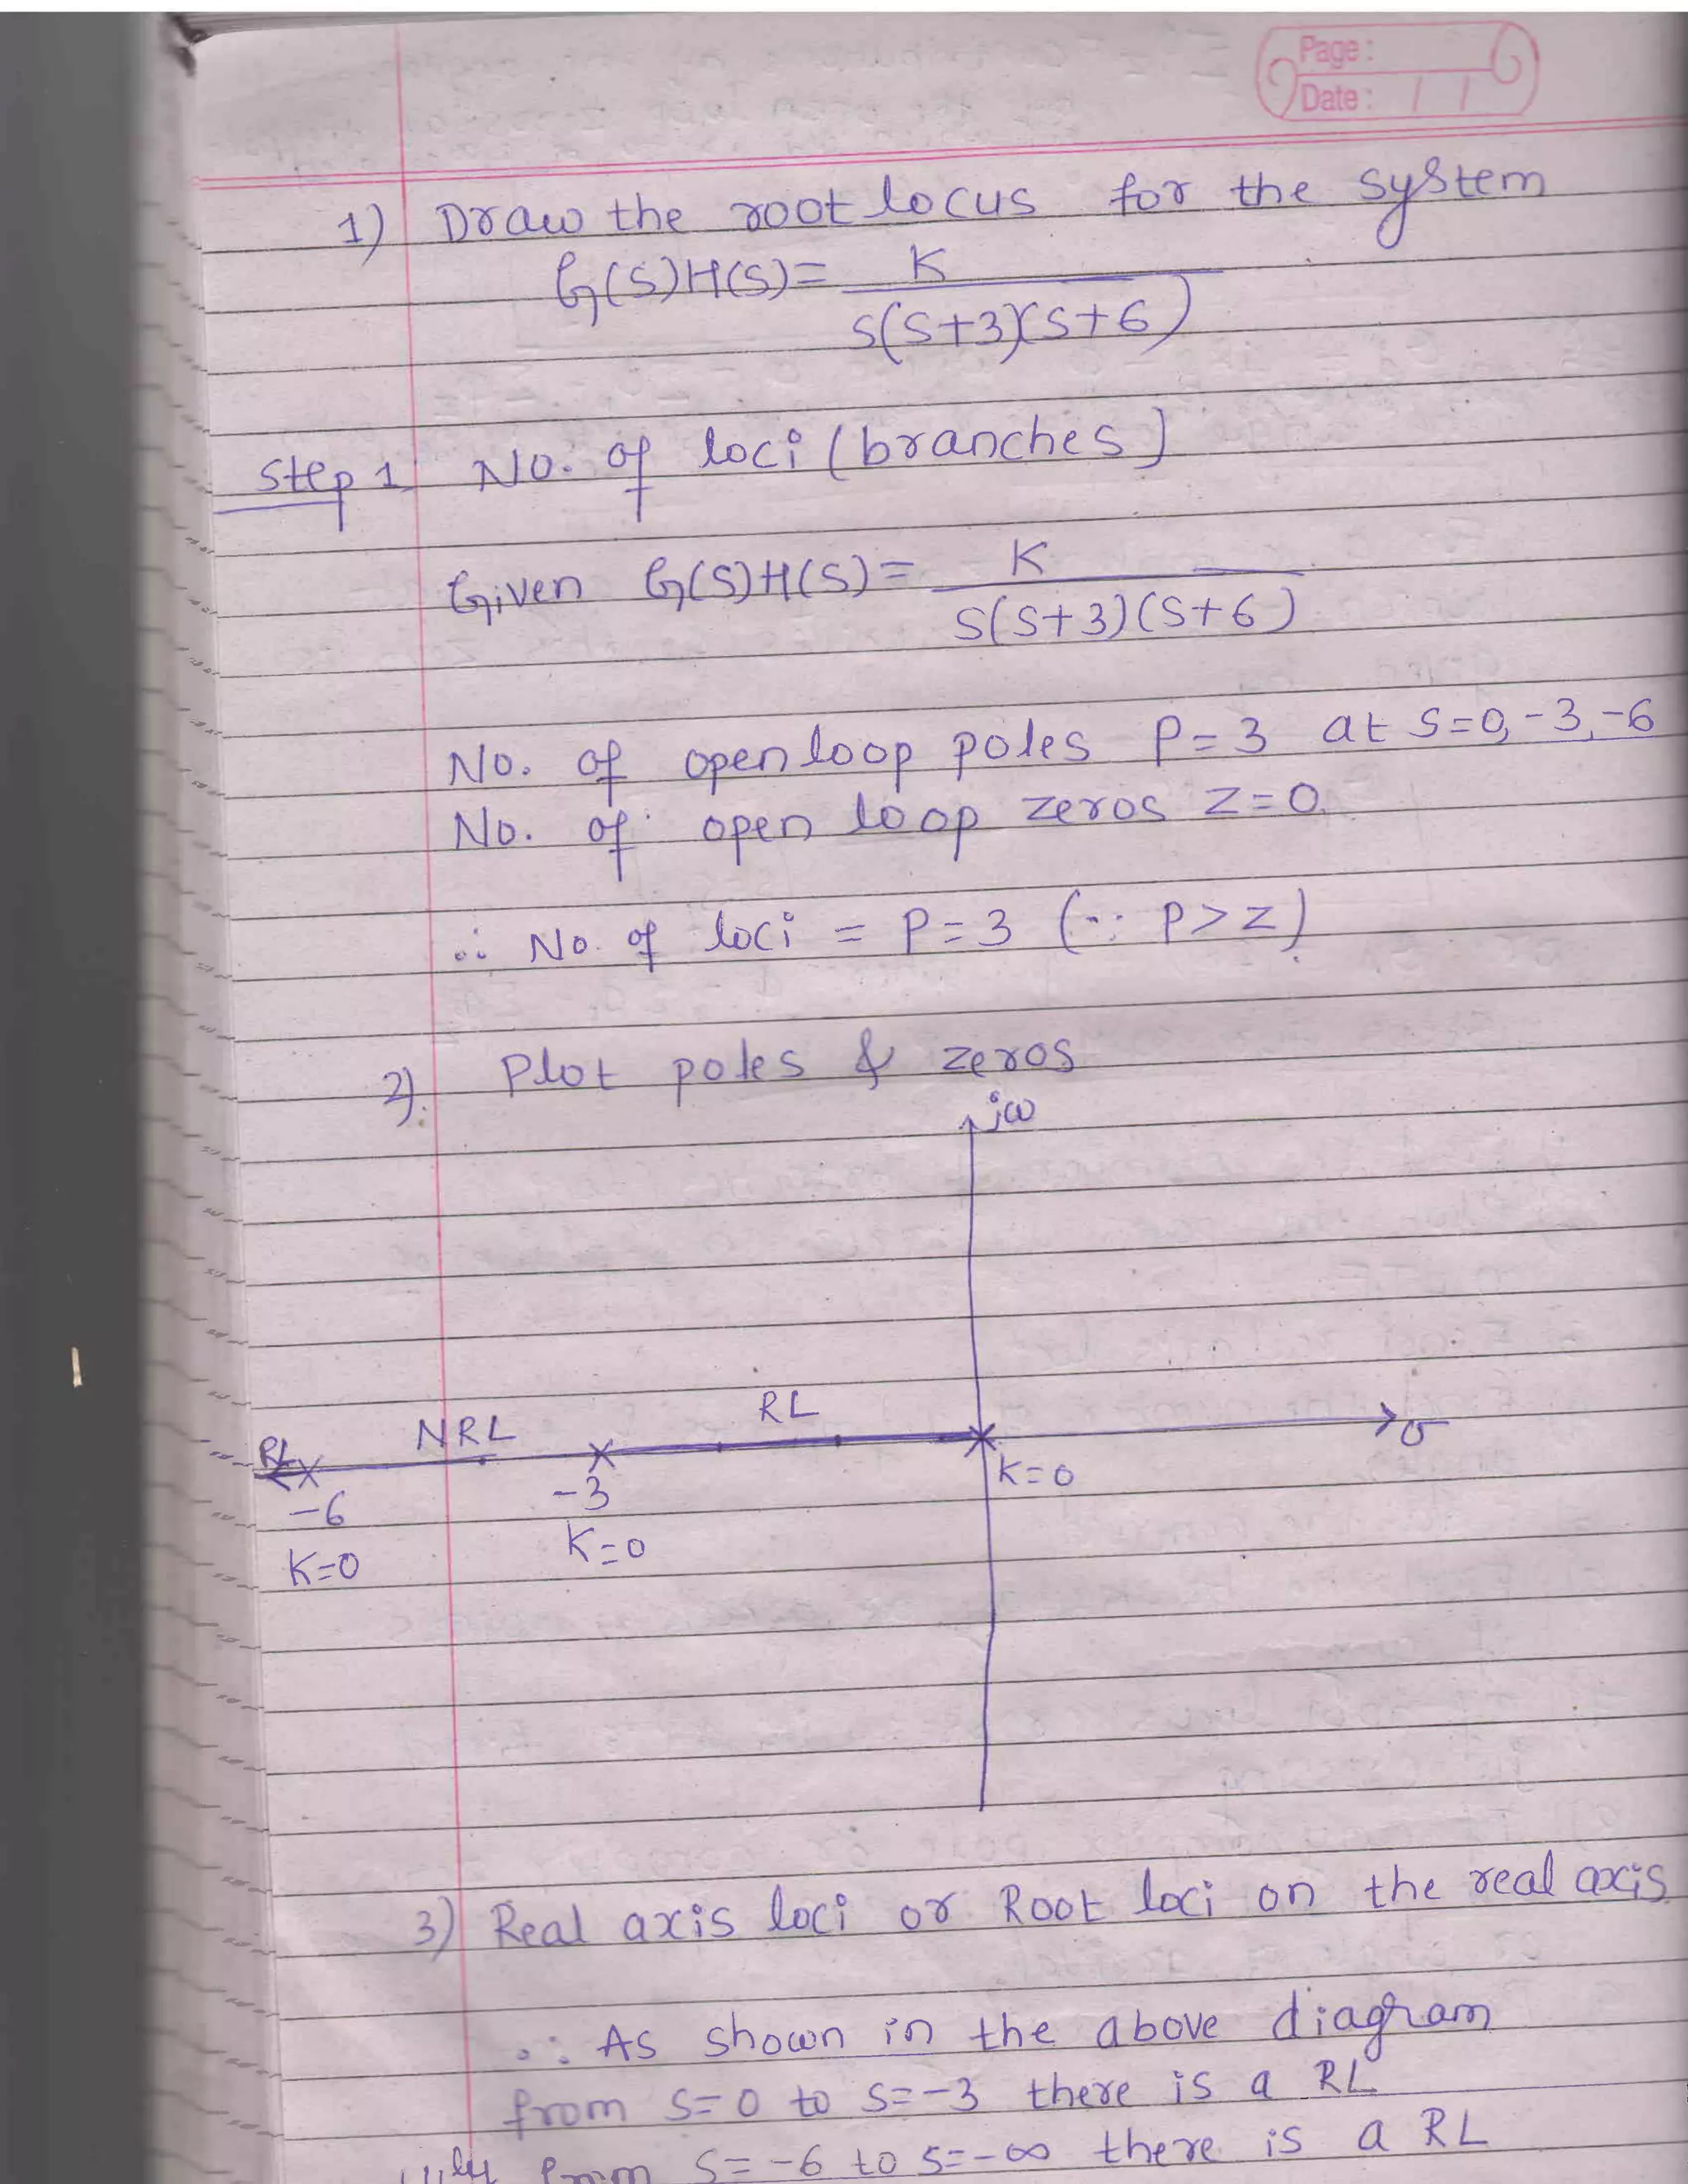 Page:
Date: / /
1) Draw the root locus for the system
G(S)H(S)= K
S(S+3)(S+6)
Step 1 No. of loci (branches)
Given G(S)H(S)= K
S(S+3)(S+6)
No. of open loop poles P=3 at S=0,-3,-6
No. of open loop zeros Z=0.
∴ No. of loci = P=3 (∵ P>Z)
2). Plot poles & zeros
jω
RL
NRL
RL
σ
K=0
-3
-6
K=0
K=0
3) Real axis loci or Root loci on the real axis
∴ As shown in the above diagram
from S=0 to S=-3 there is a RL
from S=-6 to S=-∞ there is a RL